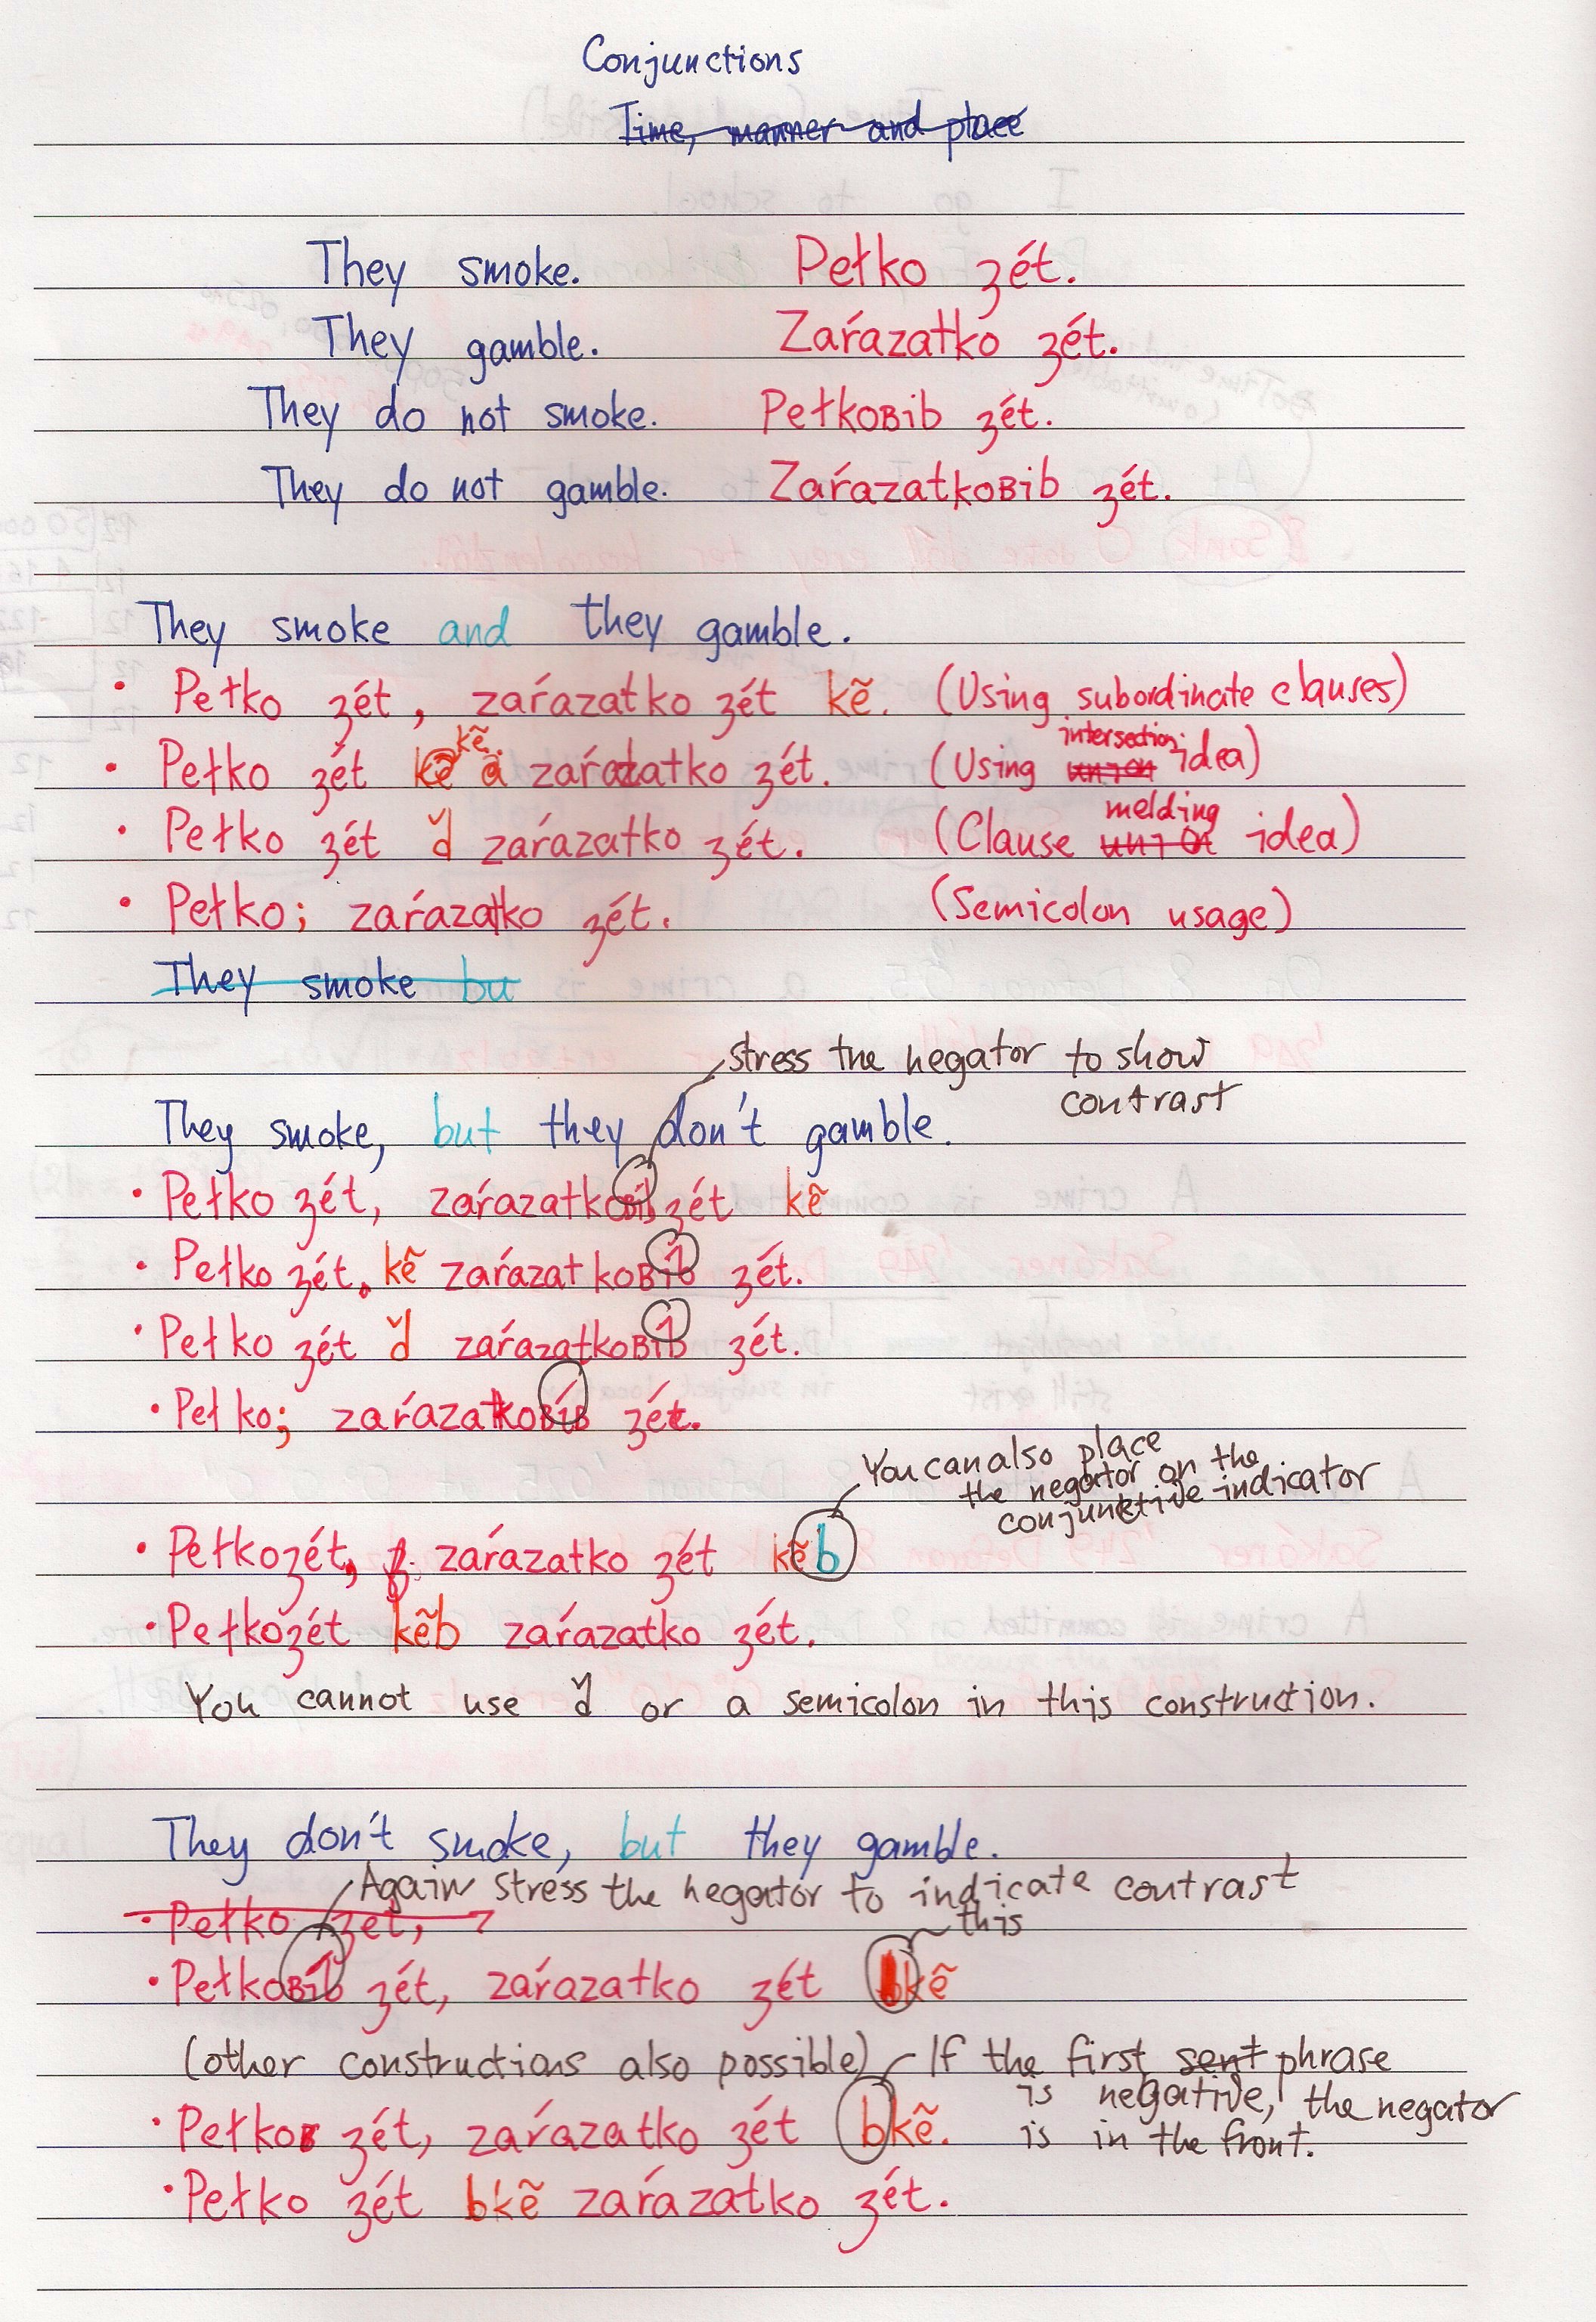 Conjunctions
Time, manner and place
They smoke. Pełko зét.
They gamble. Zaŕazatko зét.
They do not smoke. Pełkoʙib зét.
They do not gamble. Zaŕazatkoʙib зét.
They smoke and they gamble.
• Pełko зét, zaŕazatko зét kẽ. (Using subordinate clauses)
• Pełko зét kẽ zaŕazatko зét. (Using intersection idea)
• Pełko зét ď zaŕazatko зét. (Clause melding idea)
• Pełko; zaŕazatko зét. (Semicolon usage)
They smoke bu
stress the negator to show
contrast
They smoke, but they don't gamble.
• Pełko зét, zaŕazatkoʙíb зét kẽ
• Pełko зét. kẽ zaŕazatkoʙíb зét.
• Pełko зét ď zaŕazatkoʙíb зét.
• Pełko; zaŕazatkoʙíb зét.
You can also place
the negator on the
conjunktive indicator
• Pełkoзét, zaŕazatko зét kẽb
• Pełkoзét kẽb zaŕazatko зét.
You cannot use ď or a semicolon in this construction.
They don't smoke, but they gamble.
Again stress the negator to indicate contrast
• Pełko зét,
this
• Pełkoʙíb зét, zaŕazatko зét bkẽ
(other constructions also possible) If the first sent phrase
is negative, the negator
• Pełko зét, zaŕazatko зét bkẽ. is in the front.
• Pełko зét bkẽ zaŕazatko зét.